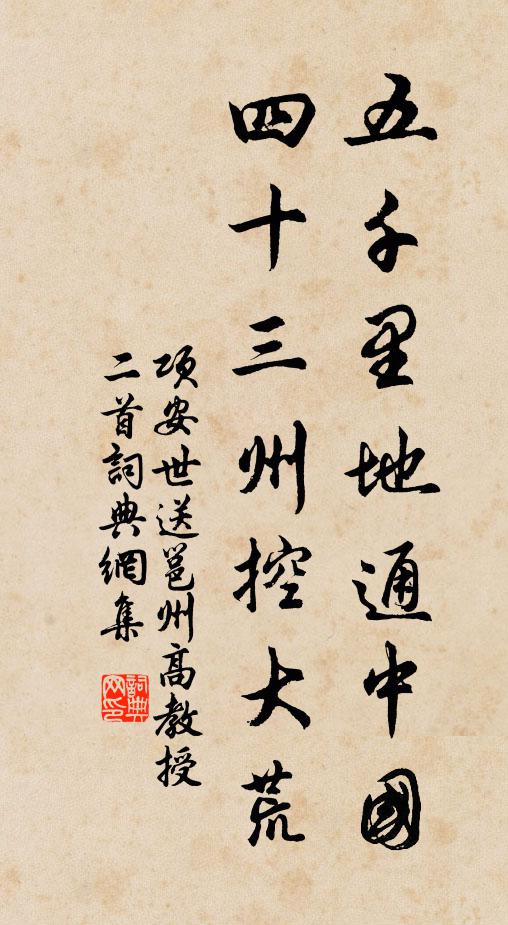 五千里地通中國
四十三州控大荒
項安世送邕州高教授
二首詞典網集
詞典
网印